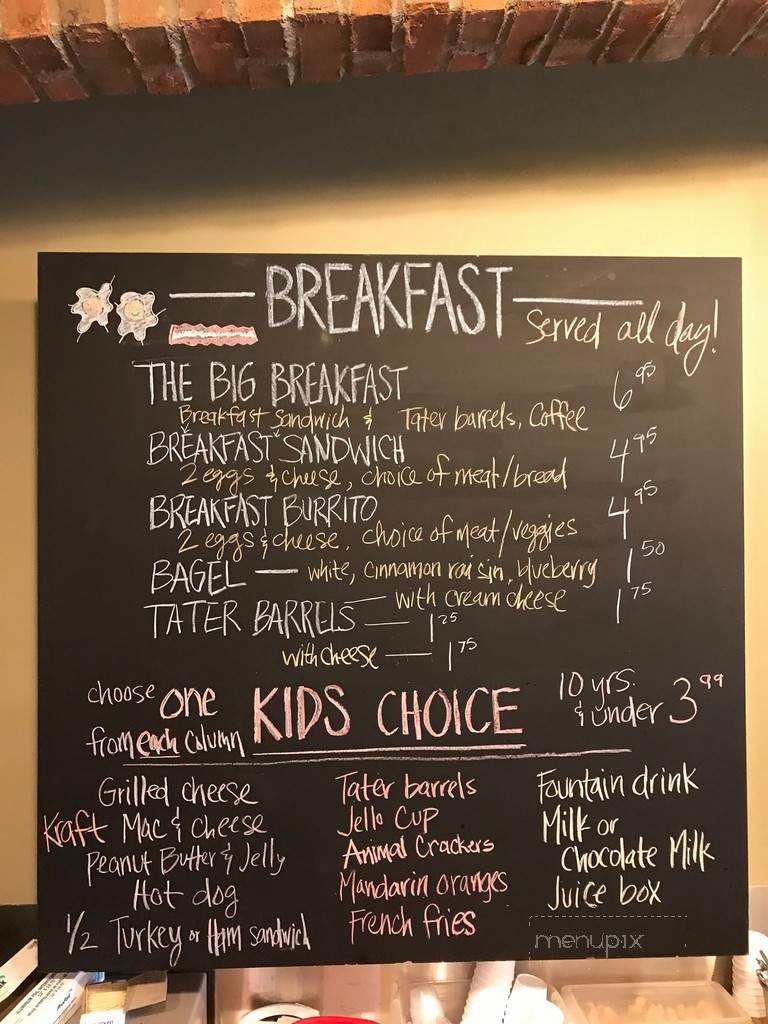 BREAKFAST
Served all day!
THE BIG BREAKFAST 6 95
Breakfast Sandwich & Tater barrels, Coffee
BREAKFAST SANDWICH 4 95
2 eggs & cheese, choice of meat/bread
BREAKFAST BURRITO 4 95
2 eggs & cheese, choice of meat/veggies
BAGEL — white, cinnamon raisin, blueberry 1 50
with cream cheese 1 75
TATER BARRELS — 1 25
with cheese — 1 75
choose one
from each column
KIDS CHOICE
10 yrs.
& under 3 99
Grilled cheese
Kraft Mac & cheese
Peanut Butter & Jelly
Hot dog
1/2 Turkey or Ham sandwich
Tater barrels
Jello Cup
Animal Crackers
Mandarin oranges
French fries
Fountain drink
Milk or
Chocolate Milk
Juice box
menupix